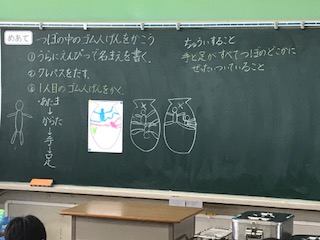 めあて つぼの中のゴム人げんをかこう
①うらにえんぴつで名まえを書く。
②クレパスをだす。
③1人目のゴム人げんをかく。
・あたま
↓
からだ
↓
手
↓
足
ちゅういすること
手と足がすべてつぼのどこかに
ぜったいついていること